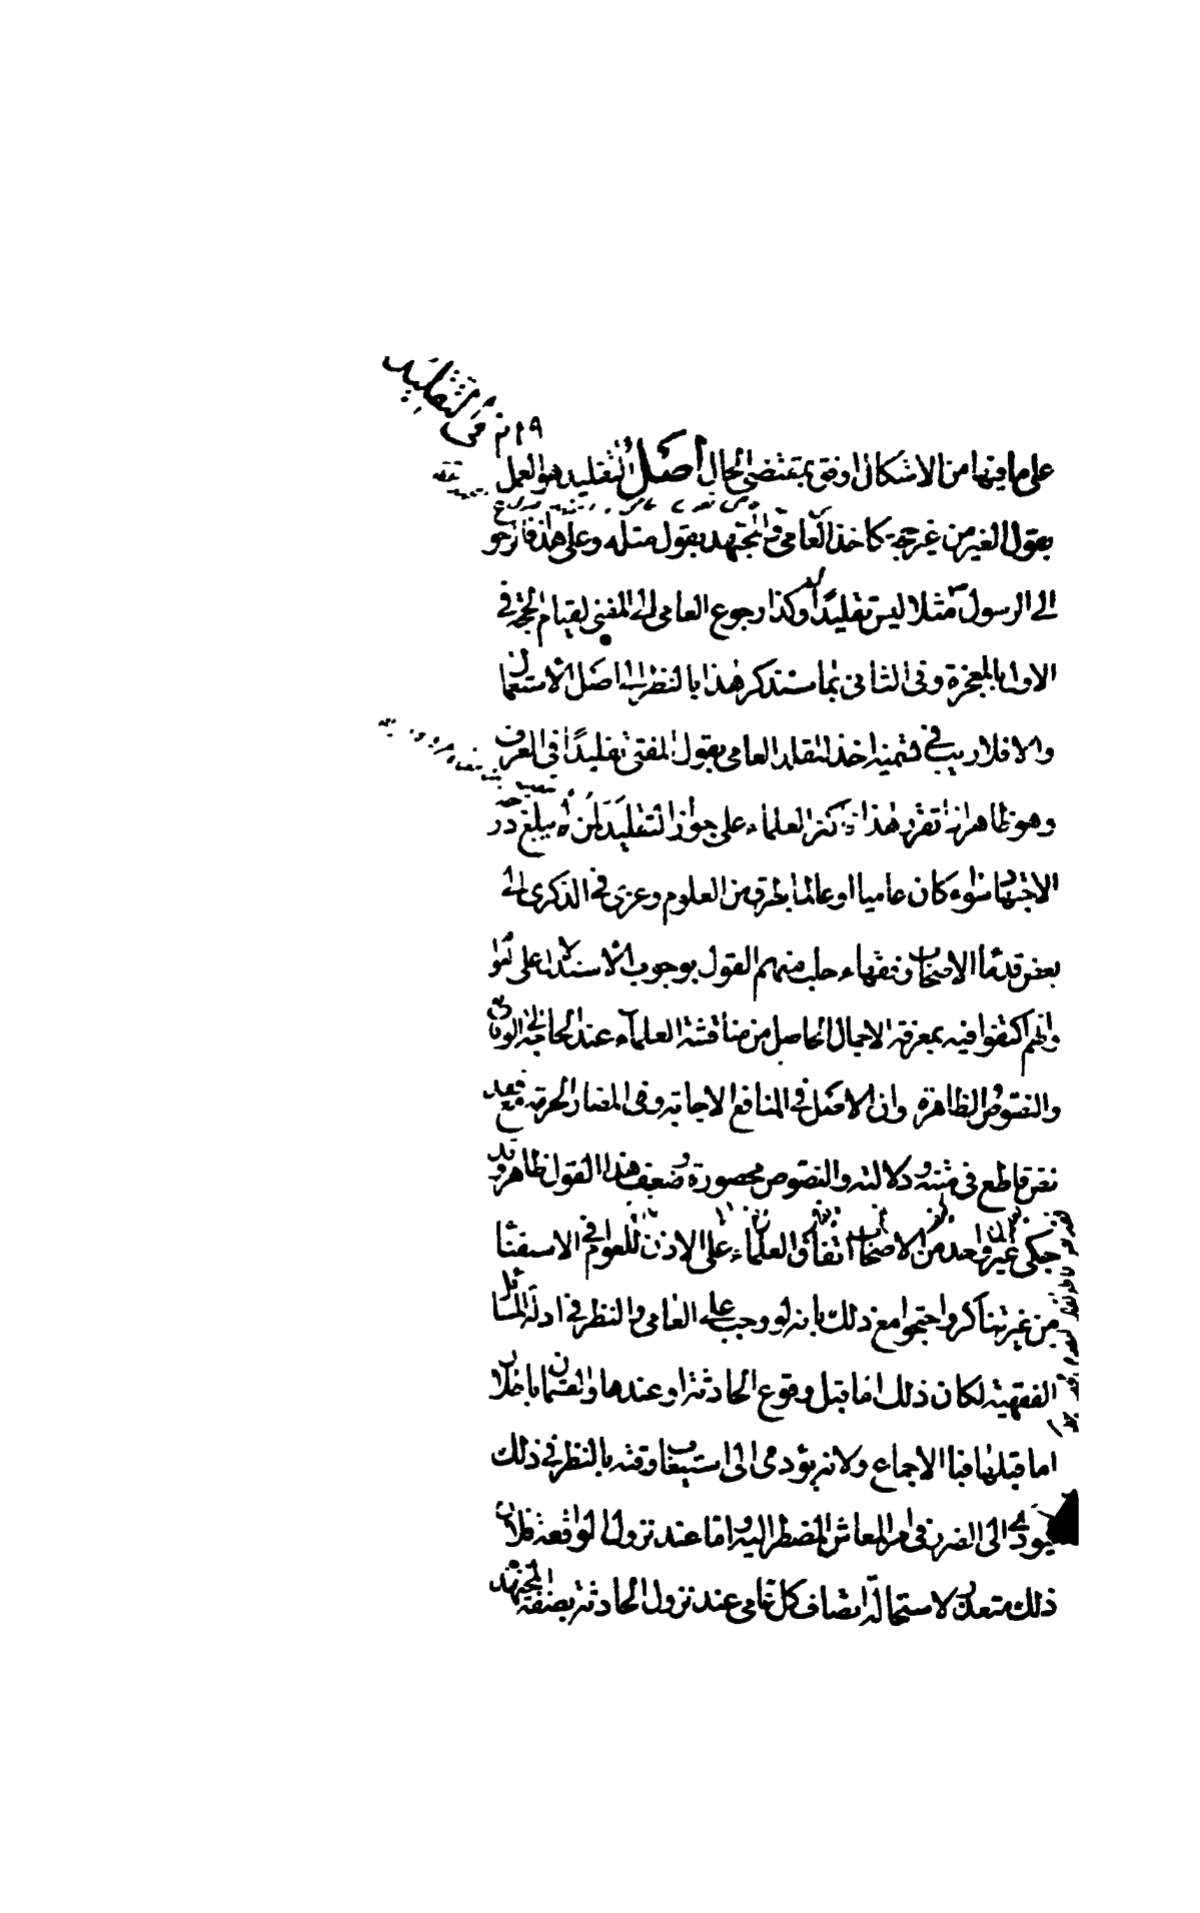 في التقليد
على ما فيها من الاشكال اوفق بمقتضى الحال أصل التقليد هو العمل
بقول الغير من غير حجة كاخذ العامي والمجتهد بقول مثله وعلى هذا فالرجوع
الى الرسول ص مثلا ليس تقليدًا له وكذا رجوع العامي الى المفتي لقيام الحجة في
الاول بالمعجزة وفي الثاني بما سنذكر هذا بالنظر الى اصل الاستعمال
والا فلا ريب في تسمية اخذ المقلد العامي بقول المفتي تقليدًا في العرف
وهو ظاهر اذا تقرر هذا فاكثر العلماء على جواز التقليد لمن لم يبلغ درجة
الاجتهاد سواء كان عاميا او عالما بطرف من العلوم وعزى في الذكرى الى
بعض قدماء الاصحاب وفقهاء حلب منهم القول بوجوب الاستدلال على العوام
وانهم اكتفوا فيه بمعرفة الاجمال الحاصل من مناقشة العلماء عند الحاجة الى الوقايع
والنصوص الظاهرة وان الاصل في المنافع الاباحة وفي المضار الحرمة مع فقد
نص قاطع في متنه ودلالته والنصوص محصورة وضعف هذا القول ظاهر وقد
حكى غير واحد من الاصحاب اتفاق العلماء على الاذن للعوام في الاستفتاء
من غير تناكر واحتجوا مع ذلك بانه لو وجب على العامي النظر في ادلة المسائل
الفقهية لكان ذلك اما قبل وقوع الحادثة او عندها والقسمان باطلان
اما قبلها فبالاجماع ولانه يؤدي الى استيعاب وقته بالنظر في ذلك
فيؤدي الى الضرر في امر المعاش المضطر اليه واما عند نزول الواقعة فلان
ذلك متعذر لاستحالة اتصاف كل عامي عند نزول الحادثة بصفة المجتهد